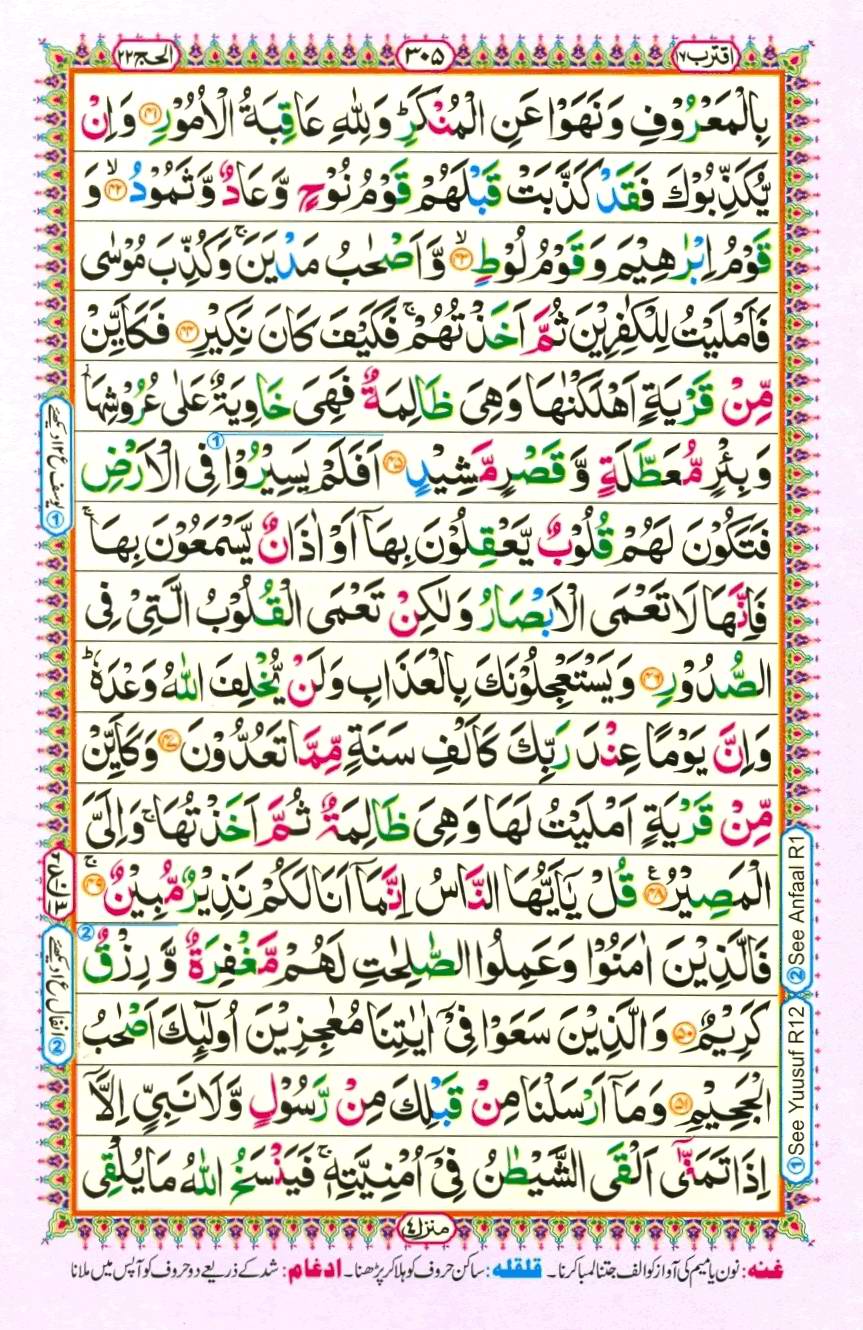 اقترب ١٧
٣٠٥
الحج ٢٢
بِالْمَعْرُوْفِ وَنَهَوْا عَنِ الْمُنْكَرِؕ وَلِلّٰهِ عَاقِبَةُ الْاُمُوْرِ ﴿۴۱﴾ وَاِنْ
يُّكَذِّبُوْكَ فَقَدْ كَذَّبَتْ قَبْلَهُمْ قَوْمُ نُوْحٍ وَّعَادٌ وَّثَمُوْدُ ۙ﴿۴۲﴾ وَ
قَوْمُ اِبْرٰهِيْمَ وَقَوْمُ لُوْطٍ ۙ﴿۴۳﴾ وَّاَصْحٰبُ مَدْيَنَ ۚ وَكُذِّبَ مُوْسٰى
فَاَمْلَيْتُ لِلْكٰفِرِيْنَ ثُمَّ اَخَذْتُهُمْ ۚ فَكَيْفَ كَانَ نَكِيْرِ ﴿۴۴﴾ فَكَاَيِّنْ
مِّنْ قَرْيَةٍ اَهْلَكْنٰهَا وَهِىَ ظَالِمَةٌ فَهِىَ خَاوِيَةٌ عَلٰى عُرُوْشِهَا
وَبِئْرٍ مُّعَطَّلَةٍ وَّقَصْرٍ مَّشِيْدٍ ﴿۴۵﴾ اَفَلَمْ يَسِيْرُوْا ① فِى الْاَرْضِ
فَتَكُوْنَ لَهُمْ قُلُوْبٌ يَّعْقِلُوْنَ بِهَاۤ اَوْ اٰذَانٌ يَّسْمَعُوْنَ بِهَا ۚ
فَاِنَّهَا لَا تَعْمَى الْاَبْصَارُ وَلٰكِنْ تَعْمَى الْقُلُوْبُ الَّتِىْ فِى
الصُّدُوْرِ ﴿۴۶﴾ وَيَسْتَعْجِلُوْنَكَ بِالْعَذَابِ وَلَنْ يُّخْلِفَ اللّٰهُ وَعْدَهٗ ؕ
وَاِنَّ يَوْمًا عِنْدَ رَبِّكَ كَاَلْفِ سَنَةٍ مِّمَّا تَعُدُّوْنَ ﴿۴۷﴾ وَكَاَيِّنْ
مِّنْ قَرْيَةٍ اَمْلَيْتُ لَهَا وَهِىَ ظَالِمَةٌ ثُمَّ اَخَذْتُهَا ۚ وَاِلَىَّ
الْمَصِيْرُ ﴿۴۸﴾ قُلْ يٰۤاَيُّهَا النَّاسُ اِنَّمَاۤ اَنَا لَكُمْ نَذِيْرٌ مُّبِيْنٌ ۚ﴿۴۹﴾
فَالَّذِيْنَ اٰمَنُوْا وَعَمِلُوا الصّٰلِحٰتِ لَهُمْ مَّغْفِرَةٌ وَّرِزْقٌ ②
كَرِيْمٌ ﴿۵۰﴾ وَالَّذِيْنَ سَعَوْا فِىْۤ اٰيٰتِنَا مُعٰجِزِيْنَ اُولٰٓئِكَ اَصْحٰبُ
الْجَحِيْمِ ﴿۵۱﴾ وَمَاۤ اَرْسَلْنَا مِنْ قَبْلِكَ مِنْ رَّسُوْلٍ وَّلَا نَبِىٍّ اِلَّاۤ
اِذَا تَمَنّٰٓى اَلْقَى الشَّيْطٰنُ فِىْۤ اُمْنِيَّتِهٖ ۚ فَيَنْسَخُ اللّٰهُ مَا يُلْقِى
① See Yuusuf R12
② See Anfaal R1
① یوسف ع ۱۲ دیکھئے
② انفال ع ۱ دیکھئے
منزل ٤
غنه: نون یا میم کی آواز کو الف جتنا لمبا کرنا۔ قلقله: ساکن حروف کو ہلا کر پڑھنا۔ ادغام: شد کے ذریعے دو حروف کو آپس میں ملانا